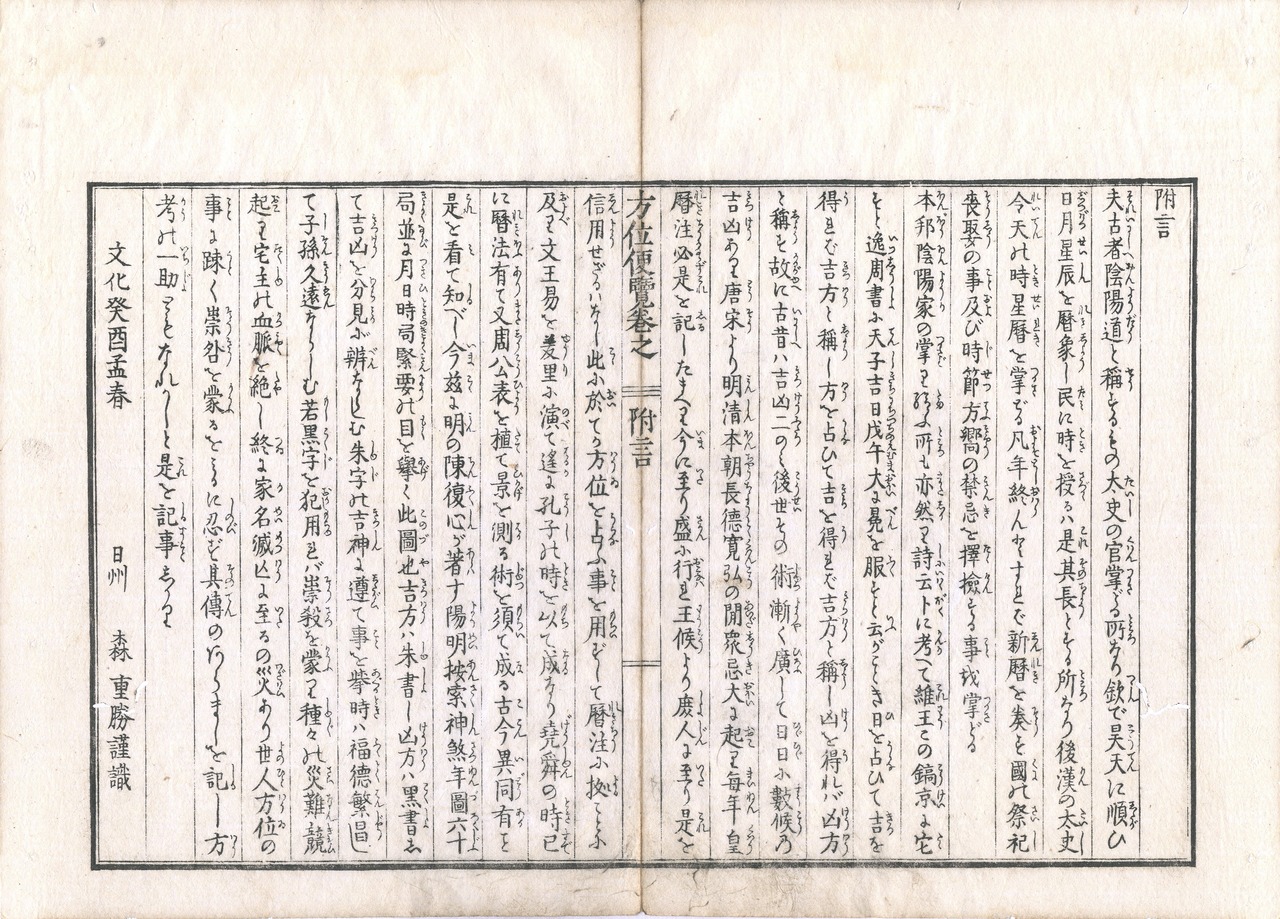 附言
夫古者陰陽道と稱するもの太史の官掌どる所なり欽で昊天に順ひ
日月星辰を暦象し民に時を授るハ是其長とする所なり後漢の太史
令天の時星暦を掌どる凡年終んとすれば新暦を奏す國の祭祀
喪娶の事及び時節方嚮の禁忌を擇撿する事を掌どる
本邦陰陽家の掌り給ふ所も亦然り詩云卜に考へて維王この鎬京に宅
すと逸周書に天子吉日戊午大に冕を服すと云がごときは日を占ひて吉を
得れば吉方と稱し方を占ひて吉を得れば吉方と稱し凶を得れバ凶方
と稱す故に古昔ハ吉凶二のミ後世その術漸く廣して日日に數候乃
吉凶あり唐宋より明清本朝長德寛弘の間衆忌大に起り毎年皇
暦注必是を記したまへり今に至り盛に行れ王候より庻人に至り是を
方位便覽卷之 附言
信用せざるハなし此に於てか方位を占ふ事を用ずして暦注に扱ことに
及り文王易を羑里に演て遙に孔子の時を以て成なり堯舜の時已
に暦法有て又周公表を植て景を測る術を須て成る古今異同有と
是を看て知べし今玆に明の陳復心が著す陽明按索神煞年圖六十
局並に月日時局緊要の目を擧く此圖也吉方ハ朱書し凶方ハ黒書し
て吉凶を分見に辨ならしむ朱字の吉神に遵て事を擧時ハ福德繁昌し
て子孫久遠ならしむ若黒字を犯用れバ祟殺を蒙り種々の災難競
起り宅主の血脈を絶し終に家名滅亡に至るの災あり世人方位の
事に疎く祟咎を蒙るをミるに忍ず其傳のあらましを記し方
考の一助ともなれかしと是を記事しかり
文化癸酉孟春 日州 森重勝謹識